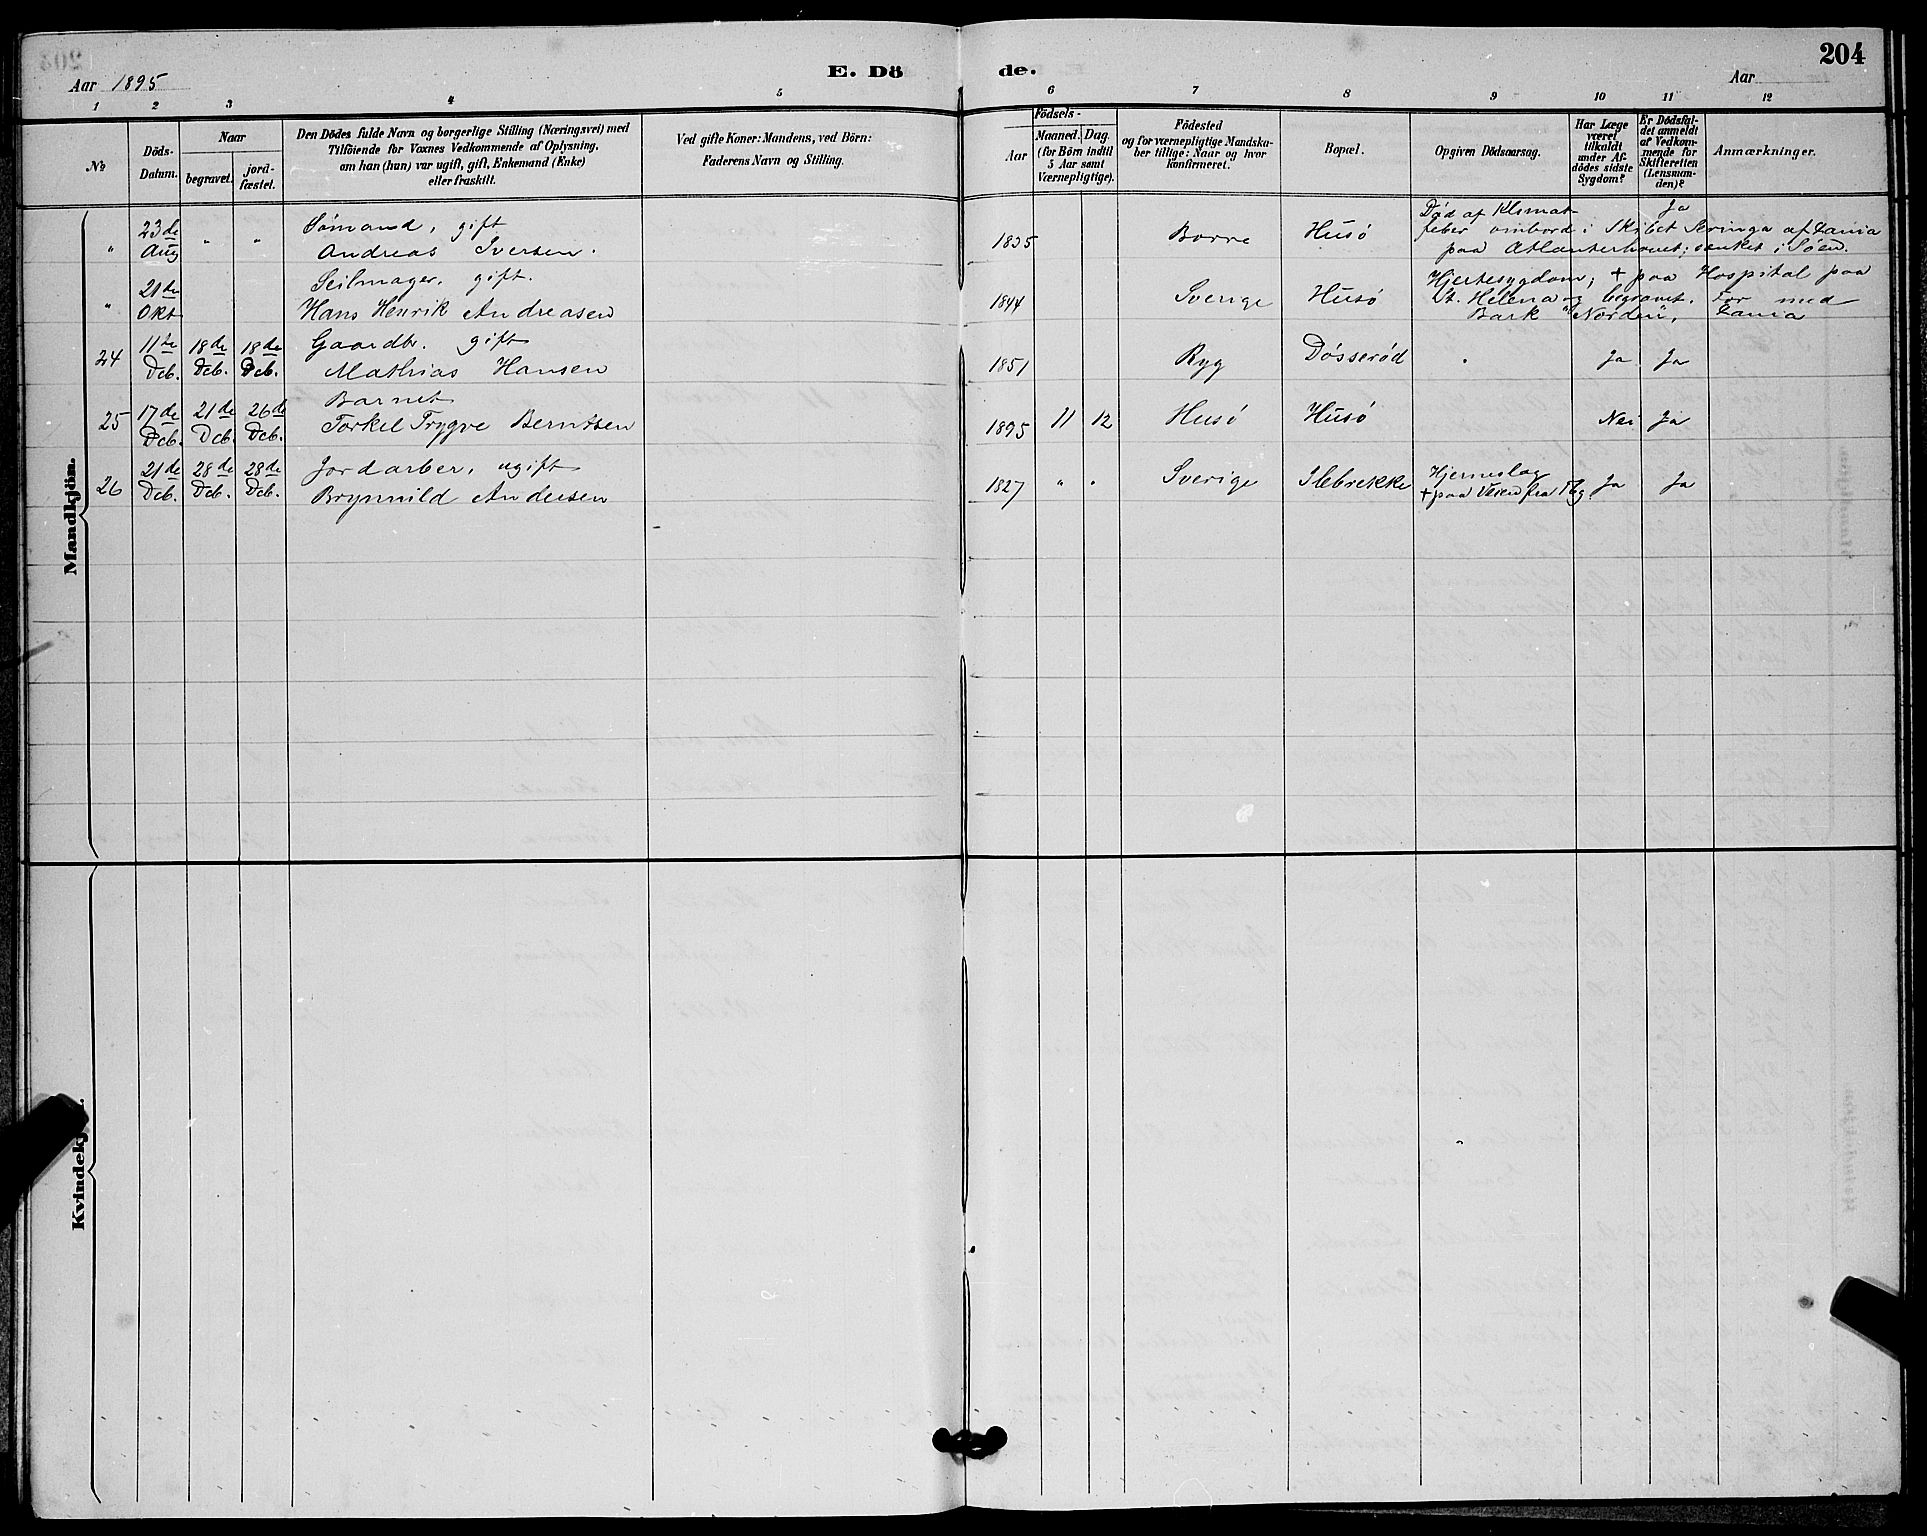 204
Aar 1895
E. Dö
de.
Aar
1 2 3 4 5 6 7 8 9 10 11 12
№
Döds-
Datum.
Naar
begravet.
jord-
fæstet.
Den Dödes fulde Navn og borgerlige Stilling (Næringsvei) med
Tilföiende for Voxnes Vedkommende af Oplysning,
om han (hun) var ugift, gift, Enkemand (Enke)
eller fraskilt.
Ved gifte Koner: Mandens, ved Börn:
Faderens Navn og Stilling.
Födsels-
Aar
Maaned.
Dag.
(for Börn indtil
5 Aar samt
Værnepligtige).
Födested
og for værnepligtige Mandska-
ber tillige: Naar og hvor
konfirmeret.
Bopæl.
Opgiven Dödsaarsag.
Har Læge
været
tilkaldt
under Af-
dödes sidste
Sygdom?
Er Dödsfal-
det anmeldt
af Vedkom-
mende for
Skifteretten
(Lensman-
den)?
Anmærkninger.
Mandkjön.
" 23de Aug " " Sømand, gift
Andreas Iversen.
1835 Borre Husö
Død af Klimat- Ja
feber ombord i Skibet Seringa af Zania
paa Atlanterhavet; sænket i Søen.
" 21de Okt Seilmager, gift.
Hans Henrik Andreasen
1844 Sverige Husö
Hjertesygdom; + paa Hospital paa
St. Helena og begravet. For med
Bark "Norden", Zania
24 11te Deb. 18de Deb. 18de Deb. Gaardbr. gift
Mathias Hansen
1851 Ryg Døsserød " Ja Ja
25 17de Deb. 21de Deb. 26de Deb. Barnet
Torkel Trygve Berntsen
1895 11 12 Husö Husö Nei Ja
26 21de Deb. 28de Deb. 28de Deb. Jordarber, ugift
Brynnild Andersen
1827 " " Sverige Ilebrekke
Hjerneslag
+ paa Veien fra Tbg. Ja Ja
Kvindekj